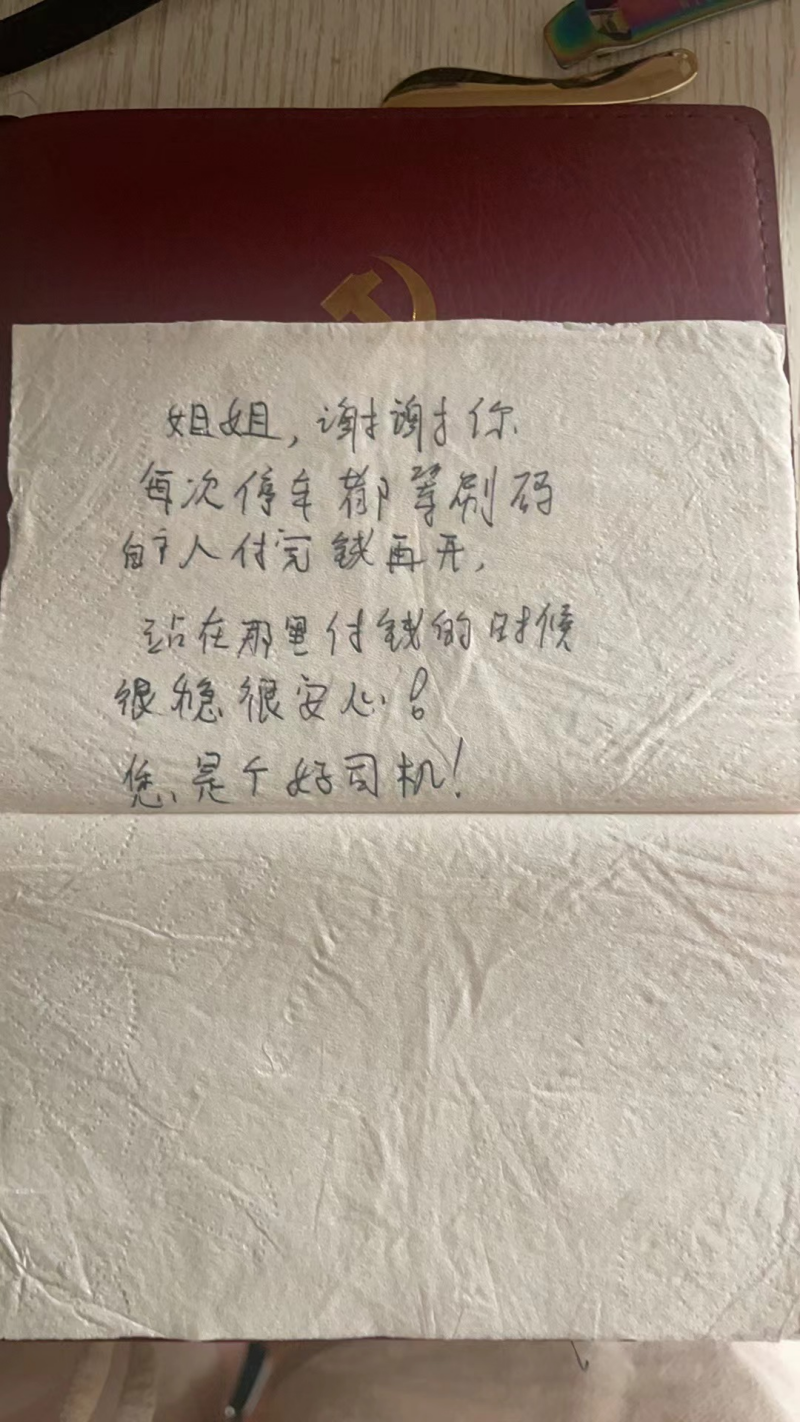 姐姐,谢谢你
每次停车都等刷码
的人付完钱再开,
站在那里付钱的时候
很稳很安心!
您是个好司机!